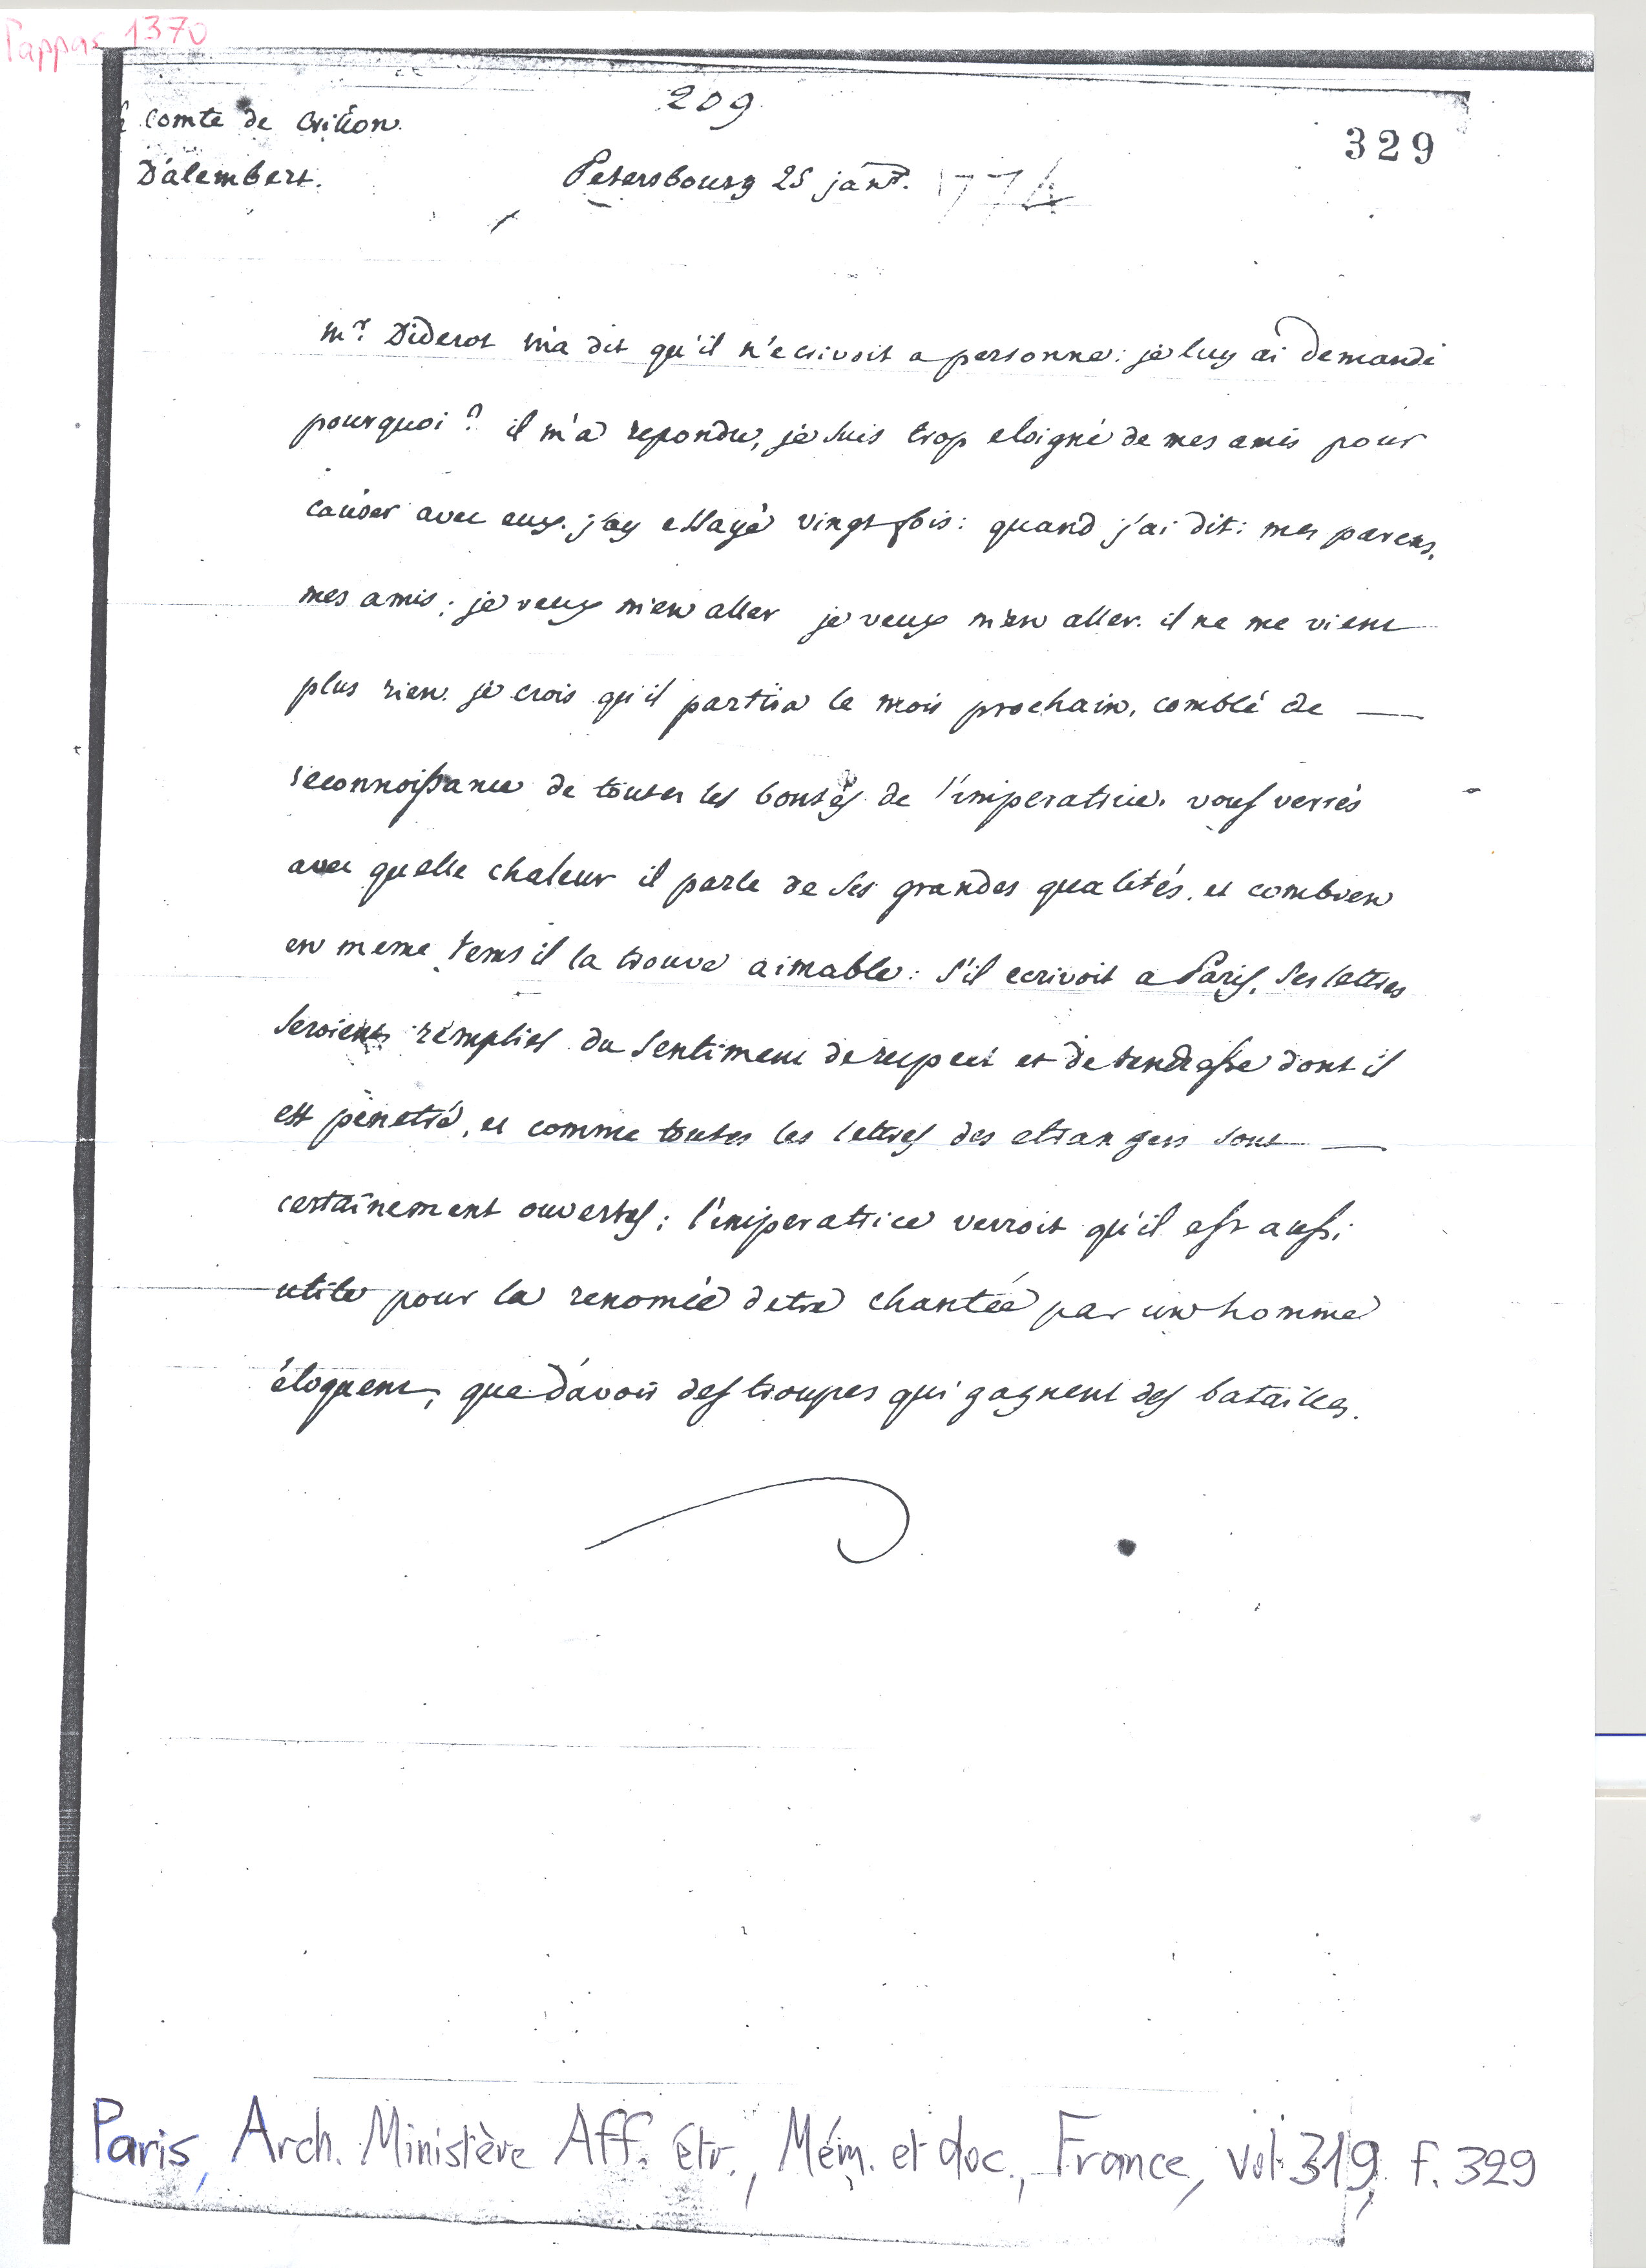 Pappas 1370
209
329
comte de Crillon.
D'alembert.
Petersbourg 25 janvr. 1774
mr. Diderot m'a dit qu'il n'ecrivoit a personne: je luy ai demandé
pourquoi? il m'a repondu, je suis trop eloigné de mes amis pour
causer avec eux. j'ay essayé vingt fois: quand j'ai dit: mes parens,
mes amis; je veux m'en aller je veux m'en aller. il ne me vient
plus rien. je crois qu'il partira le mois prochain, comblé de —
reconnoissance de toutes les bontés de l'imperatrice. vous verrés
avec quelle chaleur il parle de ses grandes qualités, et combien
en meme tems il la trouve aimable: s'il ecrivoit a Paris, ses lettres
seroient remplies du sentiment de respect et de tendresse dont il
est pénetré, et comme toutes les lettres des etrangers sont —
certainement ouvertes; l'imperatrice verroit qu'il est aussi
utile pour la renomée d'etre chantée par un homme
éloquent, que d'avoir des troupes qui gagnent des batailles.
Paris, Arch. Ministère Aff. étr., Mém. et doc., France, vol. 319, f. 329